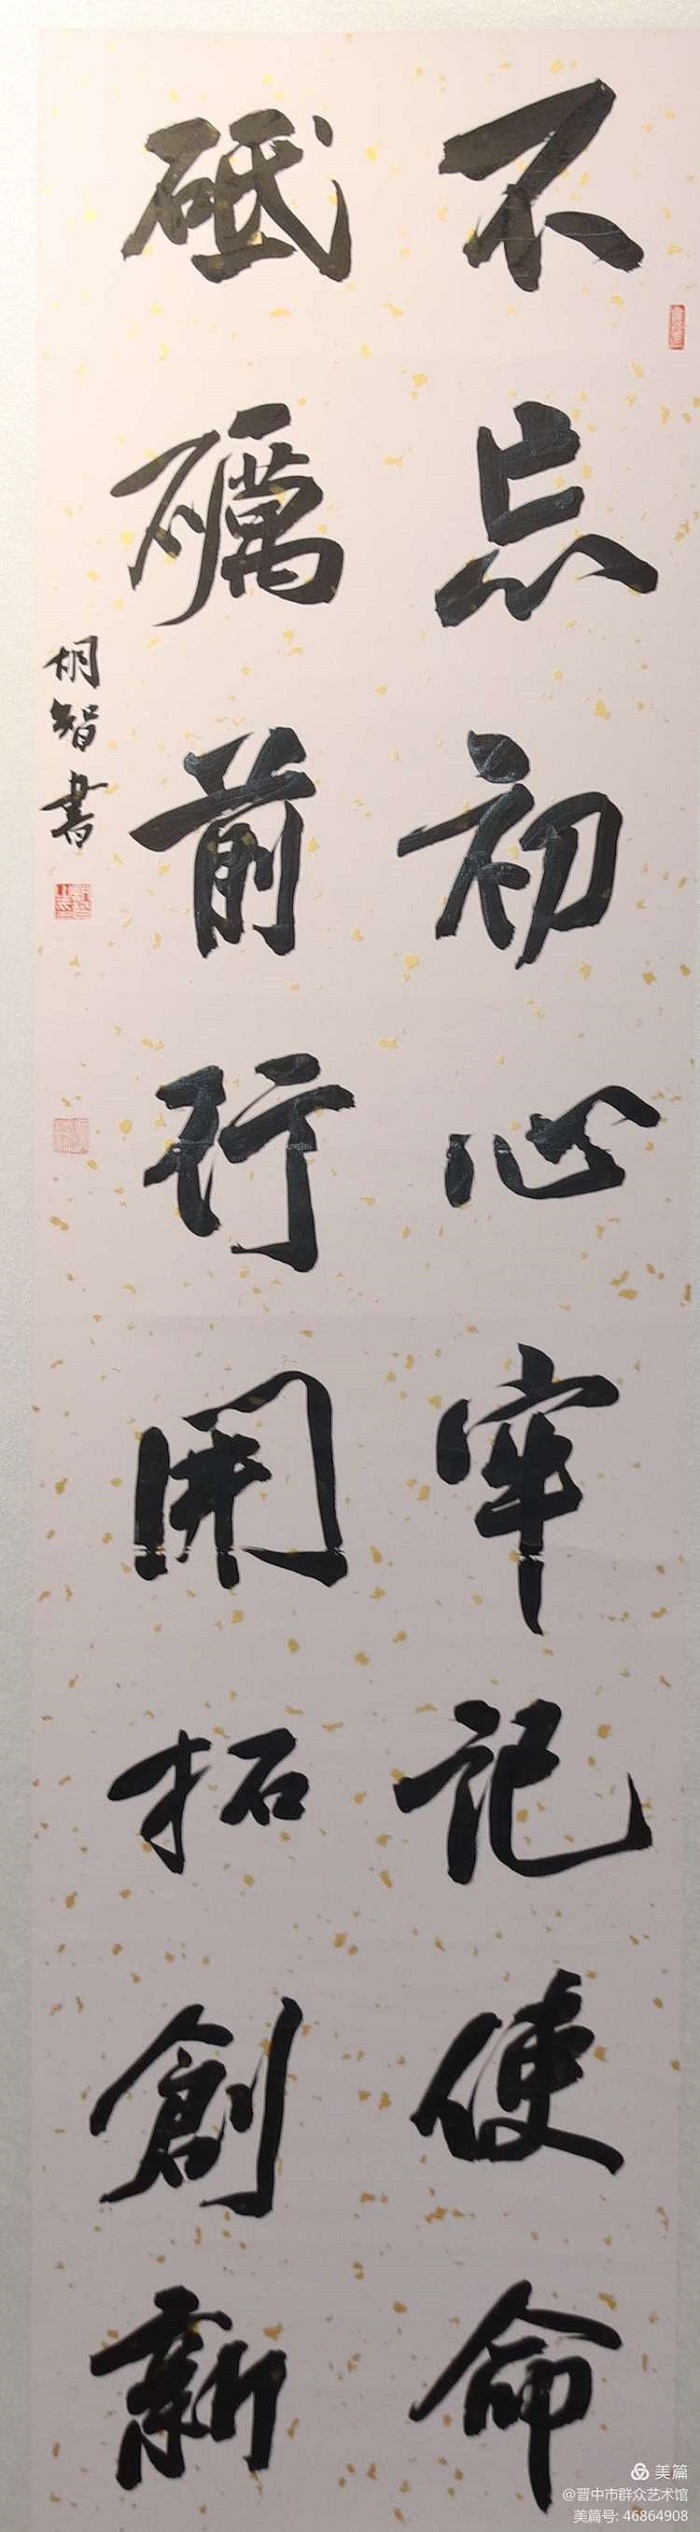 不忘初心牢记使命
砥礪前行開拓創新
胡智書
美篇
@晋中市群众艺术馆
美篇号: 46864908